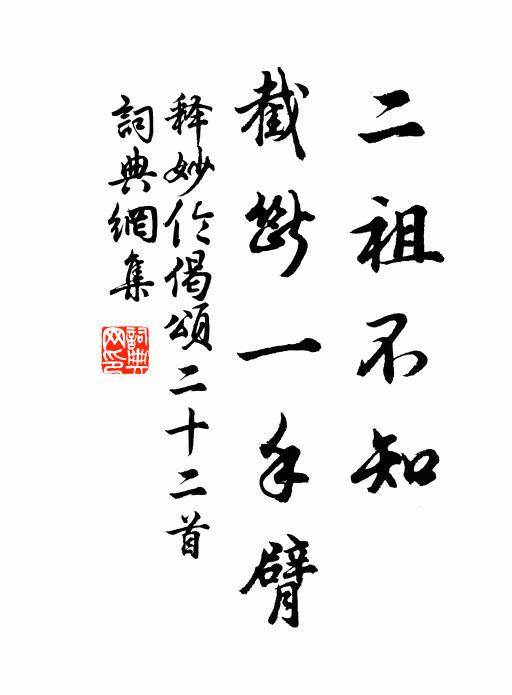 二祖不知
截斷一手臂
释妙伦偈頌二十二首
詞典網集
詞典網印